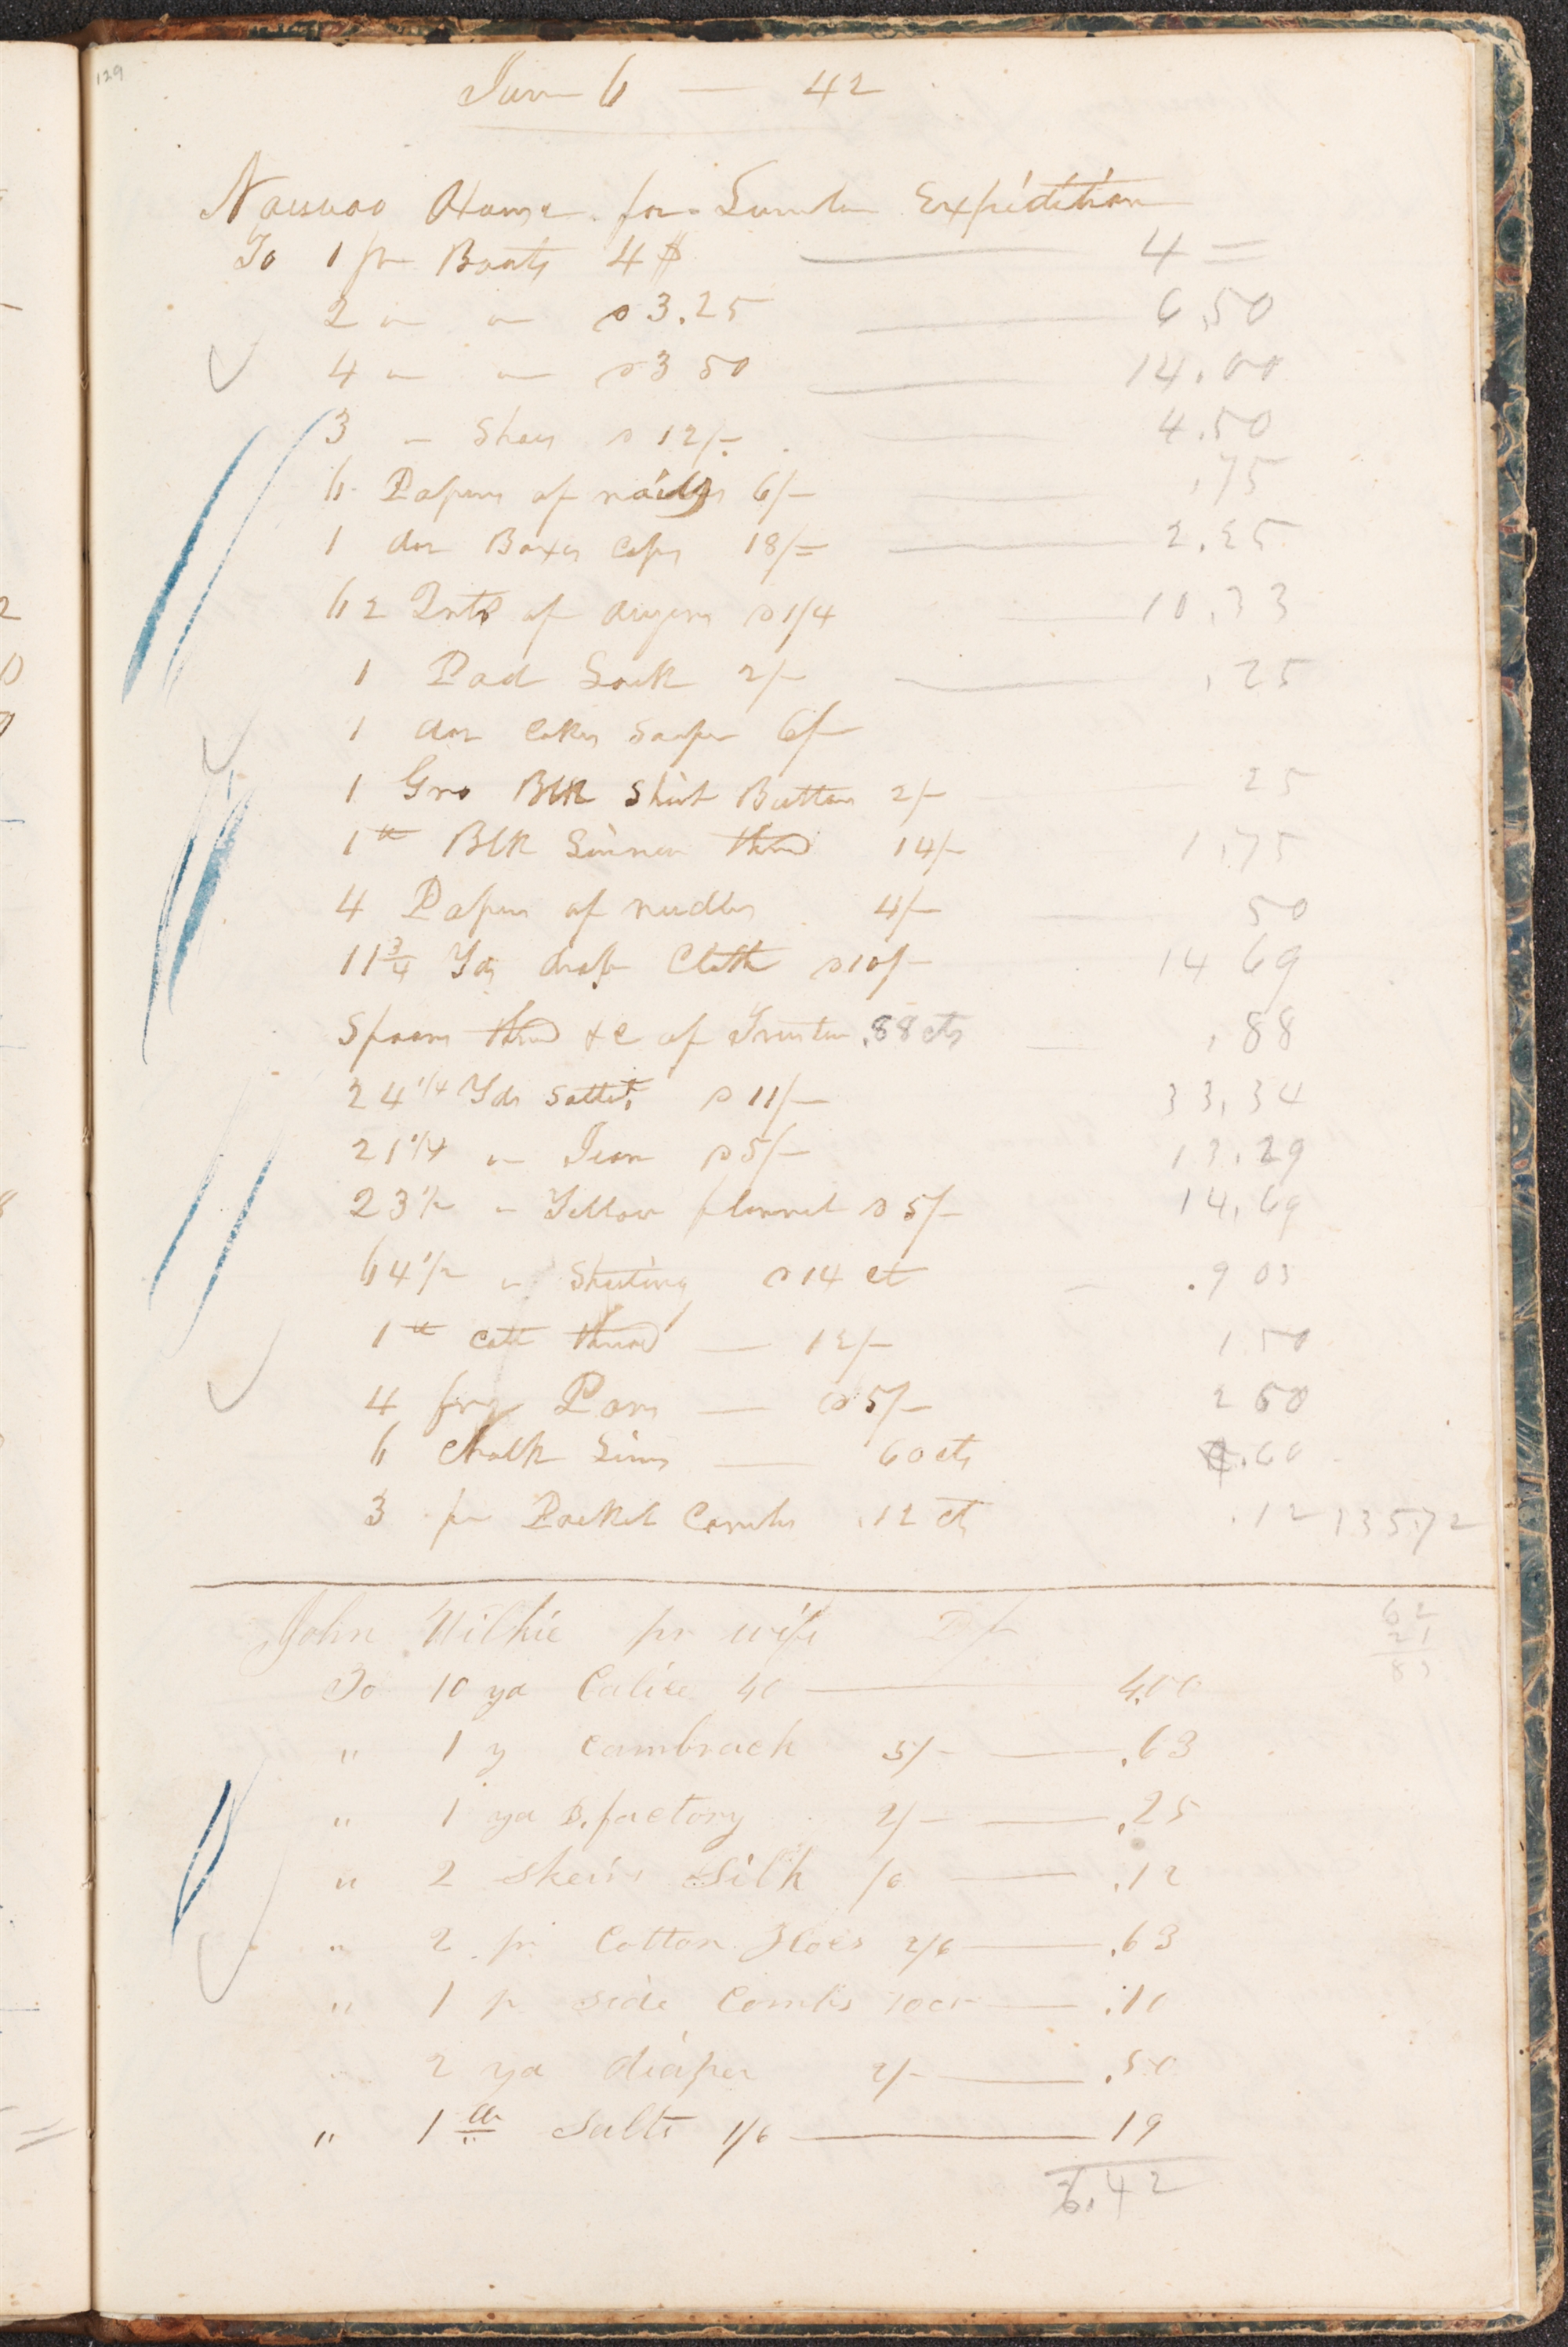 129
June 6 — 42
Nauvoo House for Lumber Expidition
To 1 pr Boots 4$ — 4 =
2 " " @ 3.25 — 6.50
4 " " @ 3 50 — 14.00
3 " Shoes @ 12/- — 4.50
6 Papers of 6/- — .75
1 doz Boxes Caps 18/= — 2.25
62 of augers @ 1/4 — 10.33
1 Pad Lock 2/- — .25
1 doz Cakes Soape 6/-
1 Gro Blk Shirt Buttons 2/- — 25
1 lb Blk Linnen thred 14/- 1.75
4 Papers of needles 4/- — 50
11 3/4 Yds drap Cloth @ 10/- 14 69
Spoons thred &c of .88 cts — .88
24 1/4 Yds Sattit @ 11/- 33,34
21 1/4 " Jean @ 5/- 13.29
23 1/2 " Yellow flannel @ 5/- 14,69
64 1/2 " Sheeting @ 14 ct — .9 03
1 lb Cott thread — 12/- 1 50
4 fry Pans — @ 5/- 2 50
6 Chalk Lines — 60 cts .60
3 pr Pocket Combs .12 cts .12 135.72
John Wilkie pr wife Dr
62
21
83
To 10 yd Calico 40 — 4.00
" 1 y Cambrack 5/- — .63
" 1 yd B. factory 2/- — .25
" 2 skeins Silk /6 — .12
" 2 pr Cotton Hoes 2/6 — .63
" 1 pr side Combs 10ct — .10
" 2 yd diaper 2/- — .50
" 1 lb Salts 1/6 — 19
6.42